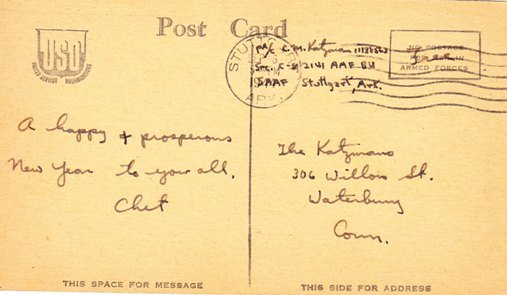 Post Card
USO
UNITED SERVICE ORGANIZATIONS
STUTTGART
ARK.
C. M. Katzman
2141 AAF BU
SAAF Stuttgart, Ark.
NO POSTAGE
Free
ARMED FORCES
A happy & prosperous
New Year to you all.
Chet
The Katzmans
306 Willow St.
Waterbury
Conn.
THIS SPACE FOR MESSAGE
THIS SIDE FOR ADDRESS